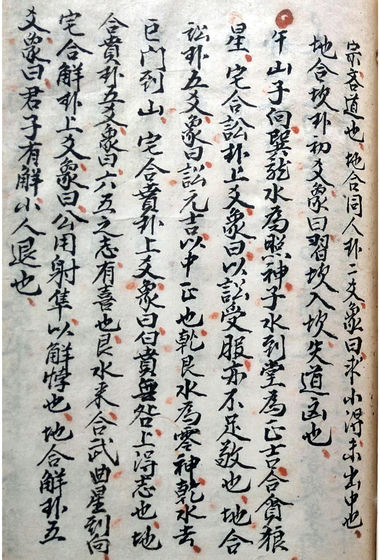 宗吝道也地合同人卦二爻象曰求小得未出中也
地合坎卦初爻象曰習坎入坎失道凶也
午山子向巽龍水為照神子水到堂為正吉合貪狼
星宅合訟卦上爻象曰以訟受服亦不足敬也地合
訟卦五爻象曰訟元吉以中正也乾艮水為零神乾水去
巨門到山宅合賁卦上爻象曰白賁無咎上得志也地
合賁卦五爻象曰六五之志有喜也艮水来合武曲星到向
宅合解卦上爻象曰公用射隼以解悖也地合解卦五
爻象曰君子有解小人退也